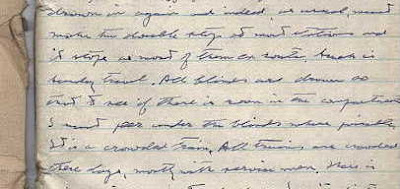 drawn in again and indeed, as usual, must
make two double stops at most stations and
it stops at most of them en route. Such is
Sunday travel. All blinds are drawn so
that to see if there is room in the compartment
I must peer under the blinds where possible.
It is a crowded train. All trains are crowded
these days, mostly with service men. There is